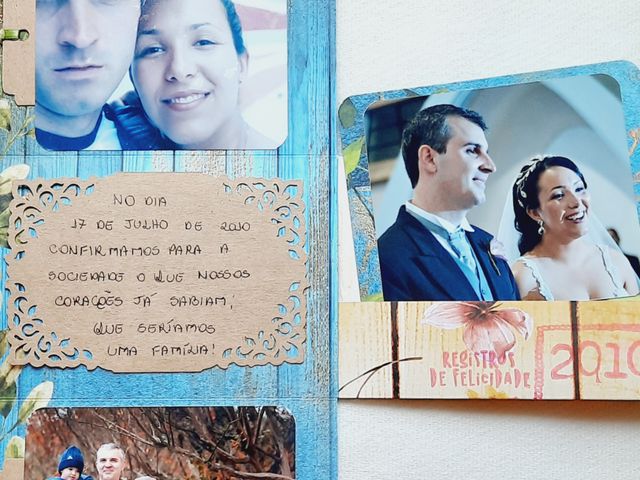 NO DIA
17 DE JULHO DE 2010
CONFIRMAMOS PARA A
SOCIEDADE O QUE NOSSOS
CORAÇÕES JÁ SABIAM;
QUE SERÍAMOS
UMA FAMÍLIA!
REGISTROS
DE FELICIDADE
2010